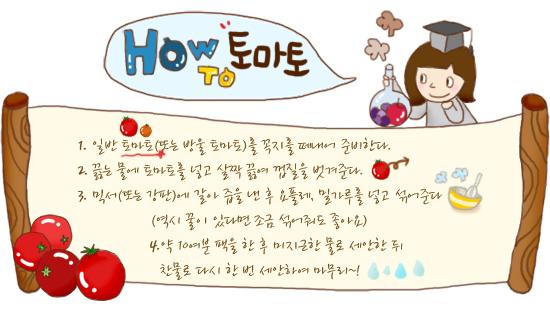 How To 토마토
1. 일반 토마토(또는 방울 토마토)를 꼭지를 떼내어 준비한다.
2. 끓는 물에 토마토를 넣고 살짝 끓여 껍질을 벗겨준다.
3. 믹서(또는 강판)에 갈아 즙을 낸 후 요플레, 밀가루를 넣고 섞어준다
(역시 꿀이 있다면 조금 섞어줘도 좋아요)
4. 약 10여분 팩을 한 후 미지근한 물로 세안한 뒤
찬물로 다시 한 번 세안하여 마무리~!